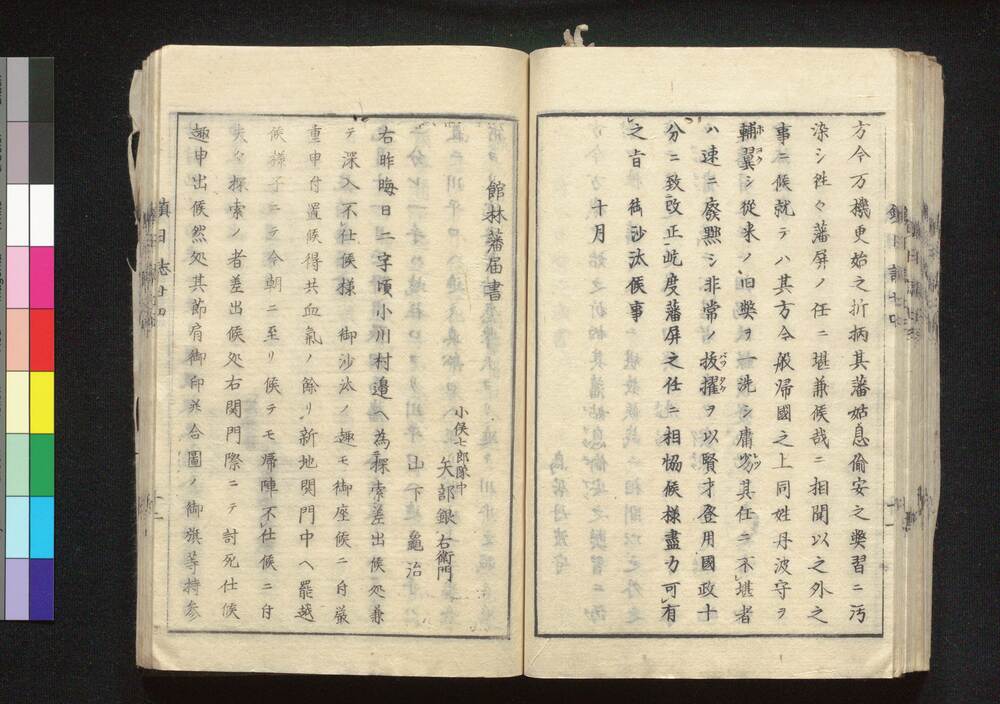 方今万機更始之折柄其藩姑息偷安之獘習ニ汚
染シ徃々藩屏ノ任ニ堪兼候哉ニ相聞以之外之
事ニ候就テハ其方今般帰國之上同姓丹波守ヲ
輔翼シ従来ノ旧獘ヲ一洗シ庸劣其任ニ不堪者
ハ速ニ廃黜シ非常ノ抜擢ヲ以賢才登用國政十
分ニ致改正屹度藩屏之任ニ相恊候様盡力可有
之旨御沙汰候事 十月
館林藩届書
小侯七郎隊中
矢部銀右衛門
山下龜治
右昨晦日二字頃小川村邉ヘ為探索差出候処兼
テ深入不仕候様 御沙汰ノ趣モ御座候ニ付厳
重申付置候得共血氣ノ餘リ新地関門中ヘ罷越
候様子ニテ今朝ニ至リ候テモ帰陣不仕候ニ付
夫々探索ノ者差出候処右関門際ニテ討死仕候
趣申出候然処其節肩御印并合圖ノ御旗等持参
鎮日志廿四